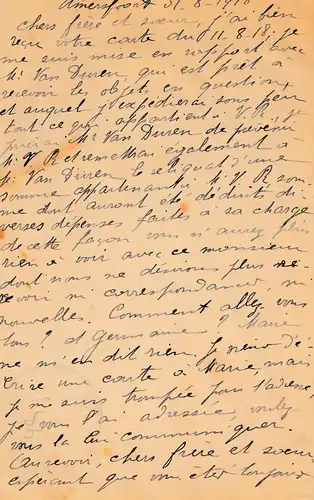 Amersfoort 31-8-1918
Chers frère et sœur, j'ai bien
reçu votre carte du 11.8.18, je
me suis mise en rapport avec
Mr Van Duren, qui est prêt à
recevoir les objets en question,
et auquel j'expédierai sous peu
tout ce qui appartient à V. R. je
Mr Van Duren de prévenir
Mr V R et remettrai également à
Mr Van Duren le reliquat d'une
somme appartenant à Mr V R som
me dont auront été déduits di
verses dépenses faites à sa charge
de cette façon vous n'aurez plus
rien à voir avec ce monsieur
dont nous ne désirons plus re-
cevoir ni correspondance, ni
nouvelles. Comment allez vous
tous? et Germaine? Marie
ne m'en dit rien. Je viens d'é
crire une carte à Marie, mais
je me suis trompée pour l'adresse,
je vous l'ai adressée, veuillez
vous la lui communiquer.
Au revoir, chers frère et sœur
espérant que vous êtes toujours